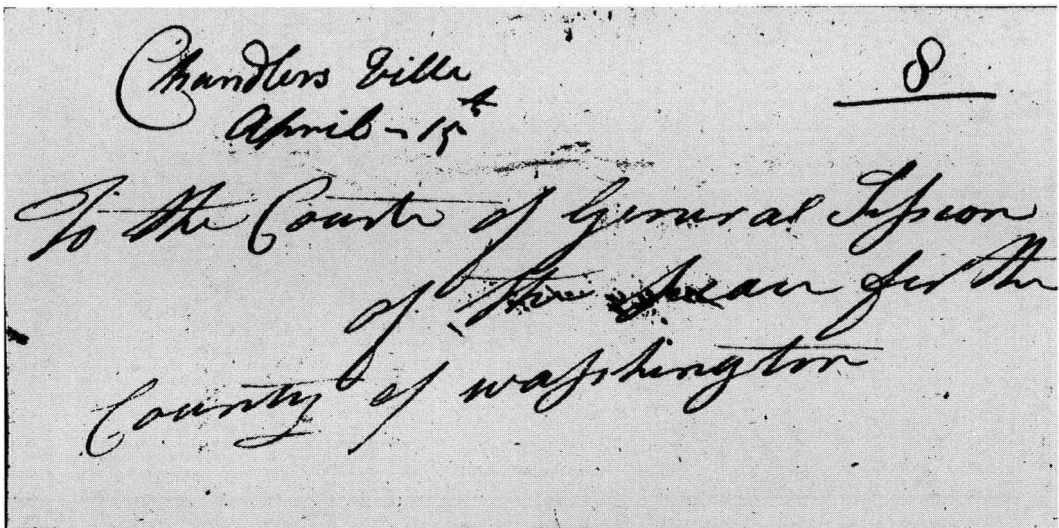 Chandlers Ville
April - 15th
8
To the Courte of General Session
of the peace for the
County of washington